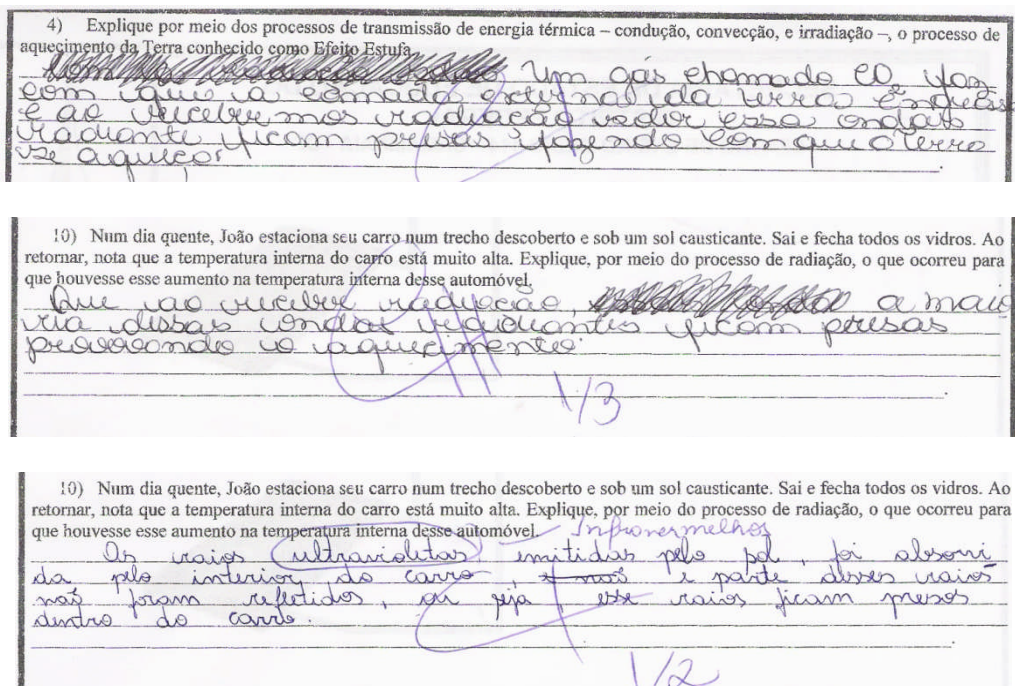 4) Explique por meio dos processos de transmissão de energia térmica – condução, convecção, e irradiação –, o processo de
aquecimento da Terra conhecido como Efeito Estufa.
Um gás chamado CO faz
com que a camada external da terra
e ao recebermos radiação essa ondas
radiante ficam presas fazendo com que a terra
se aqueça.
10) Num dia quente, João estaciona seu carro num trecho descoberto e sob um sol causticante. Sai e fecha todos os vidros. Ao
retornar, nota que a temperatura interna do carro está muito alta. Explique, por meio do processo de radiação, o que ocorreu para
que houvesse esse aumento na temperatura interna desse automóvel.
Que ao receber radiação, a maio
ria dessas ondas ficam presas
provocando o aquecimento.
1/3
10) Num dia quente, João estaciona seu carro num trecho descoberto e sob um sol causticante. Sai e fecha todos os vidros. Ao
retornar, nota que a temperatura interna do carro está muito alta. Explique, por meio do processo de radiação, o que ocorreu para
que houvesse esse aumento na temperatura interna desse automóvel.
Infravermelhos
Os raios ultravioletas emitidas pelo sol, foi absorvi
da pelo interior do carro, e parte desses raios
não foram refletidos, ou seja, esse raios ficam presos
dentro do carro.
1/2